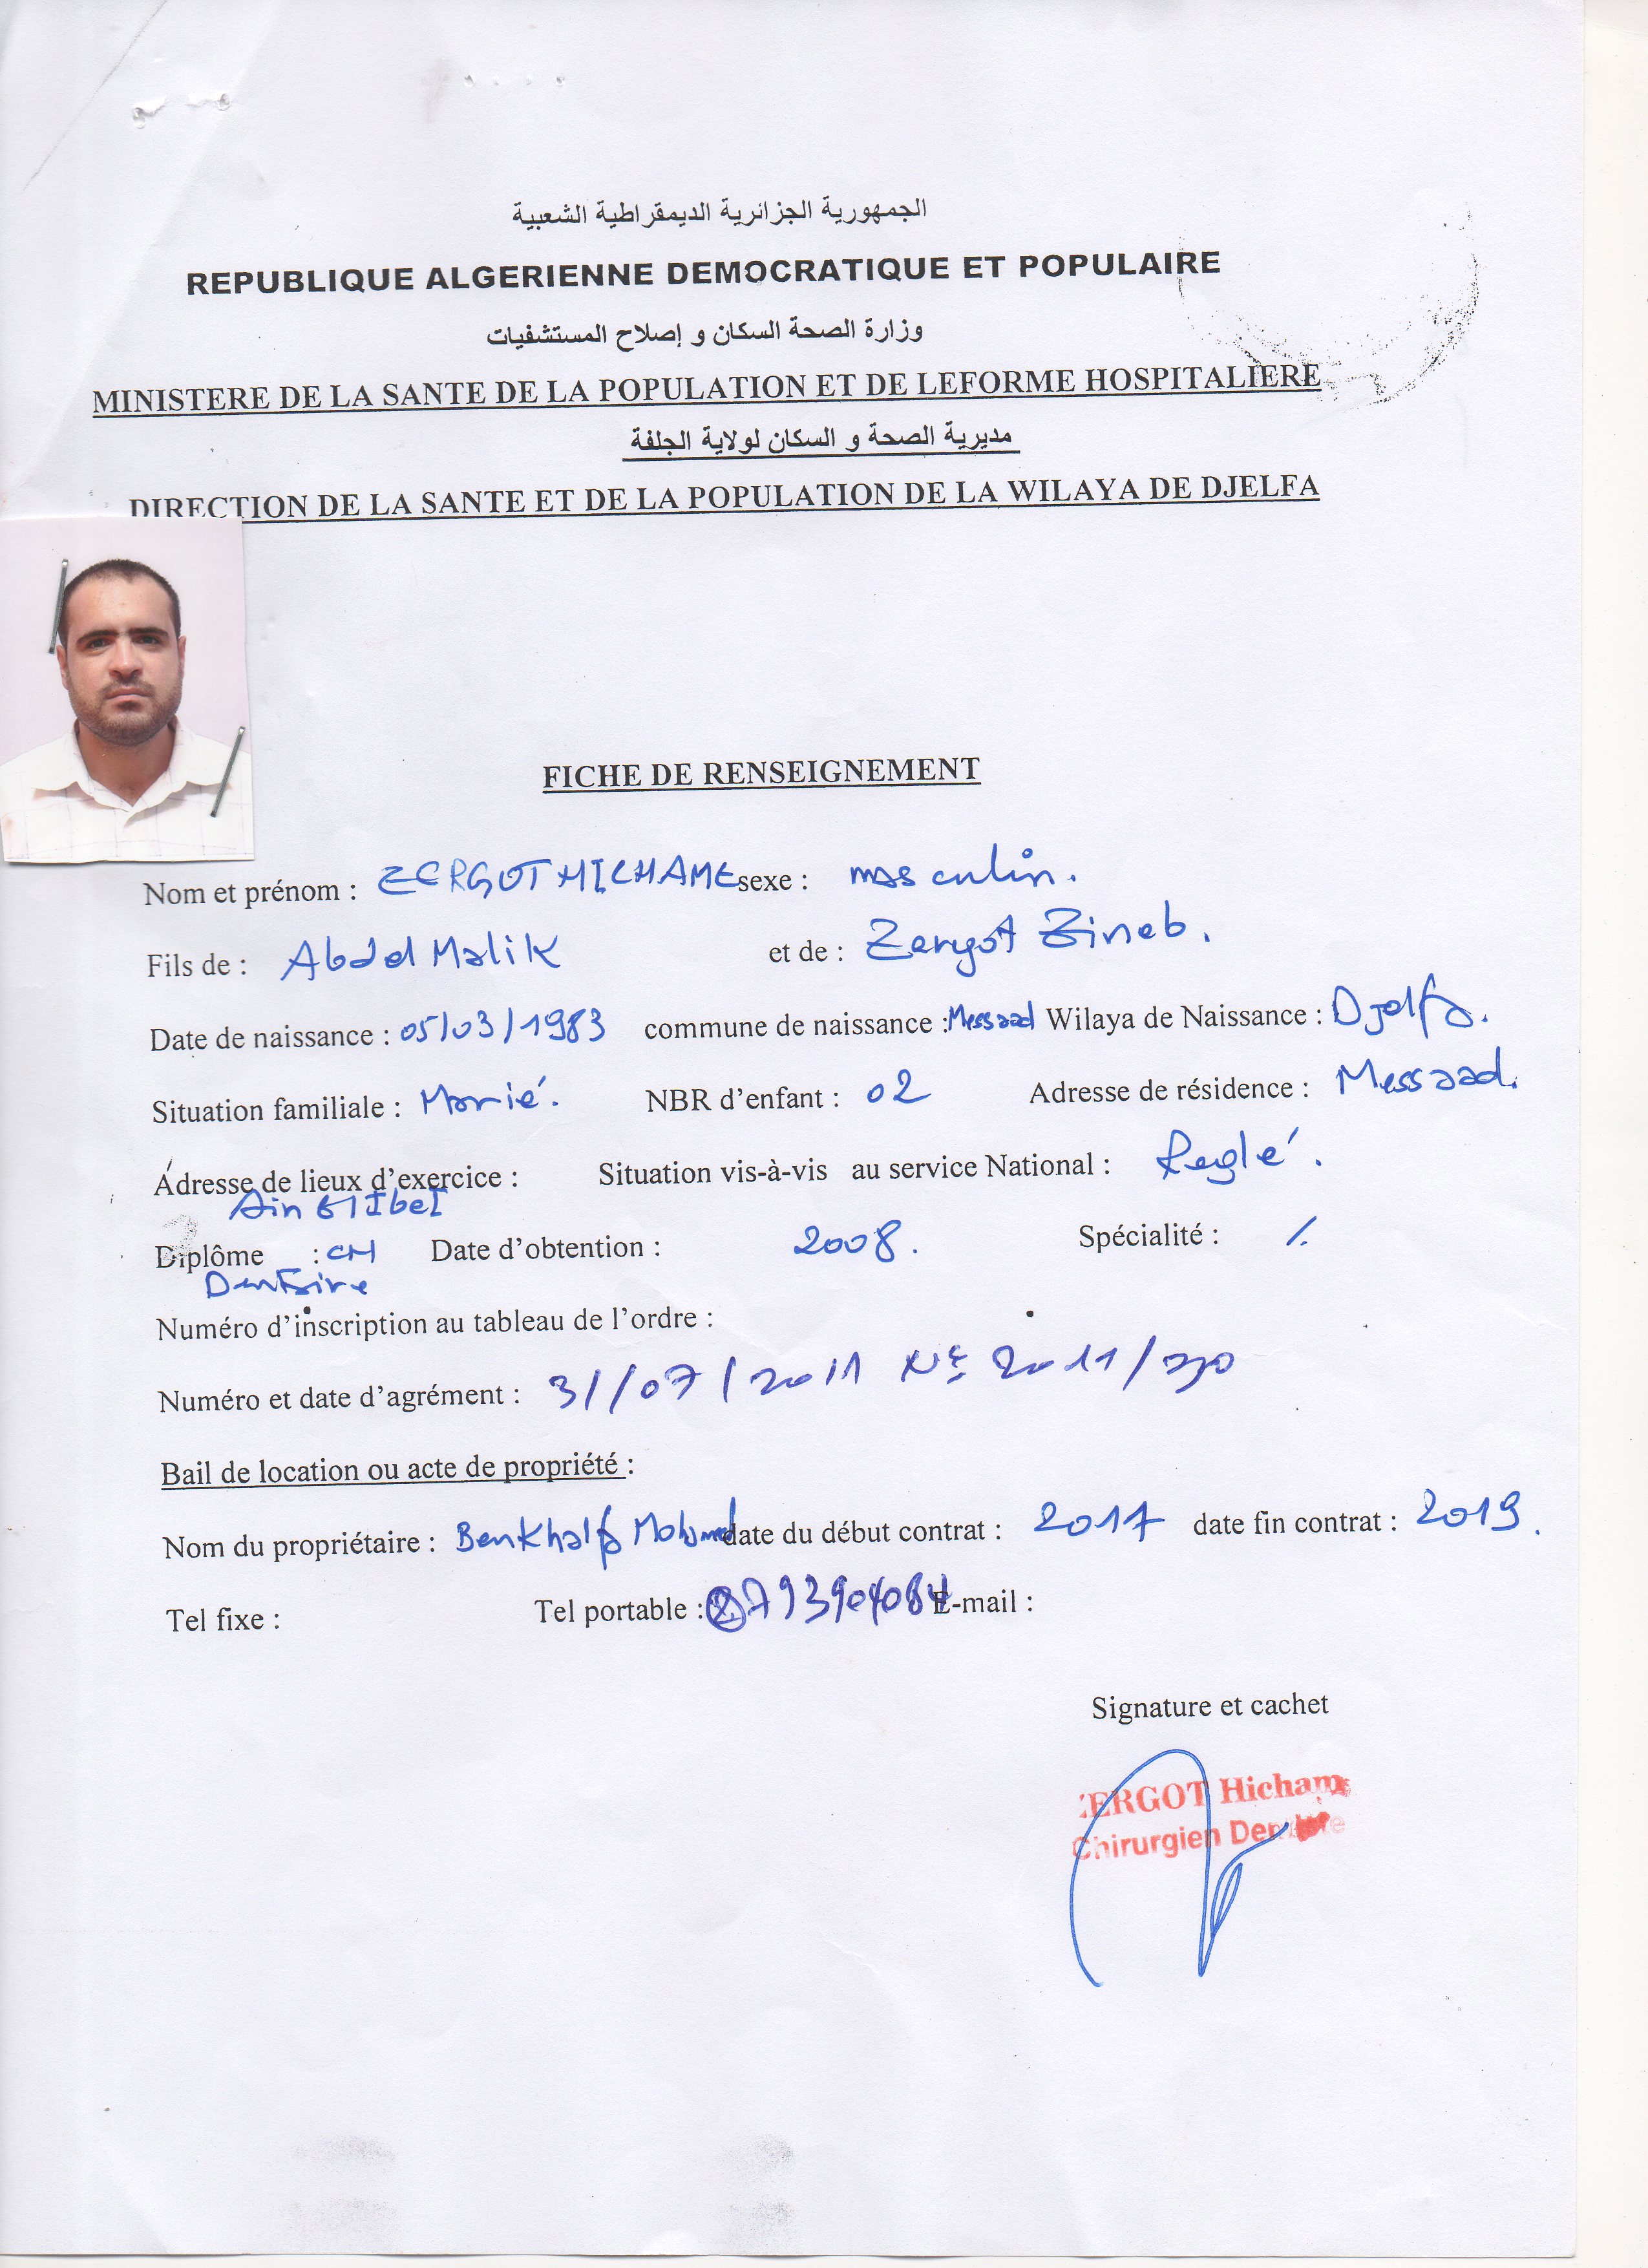 الجمهورية الجزائرية الديمقراطية الشعبية
REPUBLIQUE ALGERIENNE DEMOCRATIQUE ET POPULAIRE
وزارة الصحة السكان و إصلاح المستشفيات
MINISTERE DE LA SANTE DE LA POPULATION ET DE LEFORME HOSPITALIERE
مديرية الصحة و السكان لولاية الجلفة
DIRECTION DE LA SANTE ET DE LA POPULATION DE LA WILAYA DE DJELFA
FICHE DE RENSEIGNEMENT
Nom et prénom : ZERGOT HICHAME sexe : masculin.
Fils de : Abdel Malik et de : Zergot Zineb.
Date de naissance : 05/03/1983 commune de naissance : Messaad Wilaya de Naissance : Djelfa.
Situation familiale : Marié. NBR d'enfant : 02 Adresse de résidence : Messaad.
Adresse de lieux d'exercice : Situation vis-à-vis au service National : Reglé.
Ain El Ibel
Diplôme : CH Date d'obtention : 2008. Spécialité : /.
Dentaire
Numéro d'inscription au tableau de l'ordre :
Numéro et date d'agrément : 31/07/2011 N°
Bail de location ou acte de propriété :
Nom du propriétaire : Benkhalfa Mohamed date du début contrat : 2017 date fin contrat : 2019.
Tel fixe : Tel portable : E-mail :
Signature et cachet
ZERGOT Hichame
Chirurgien Dentiste